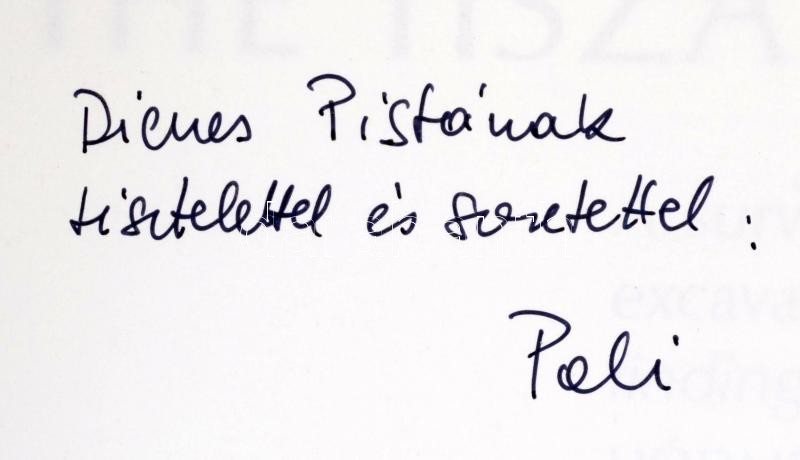 Dienes Pistának
tisztelettel és szeretettel :
Pali